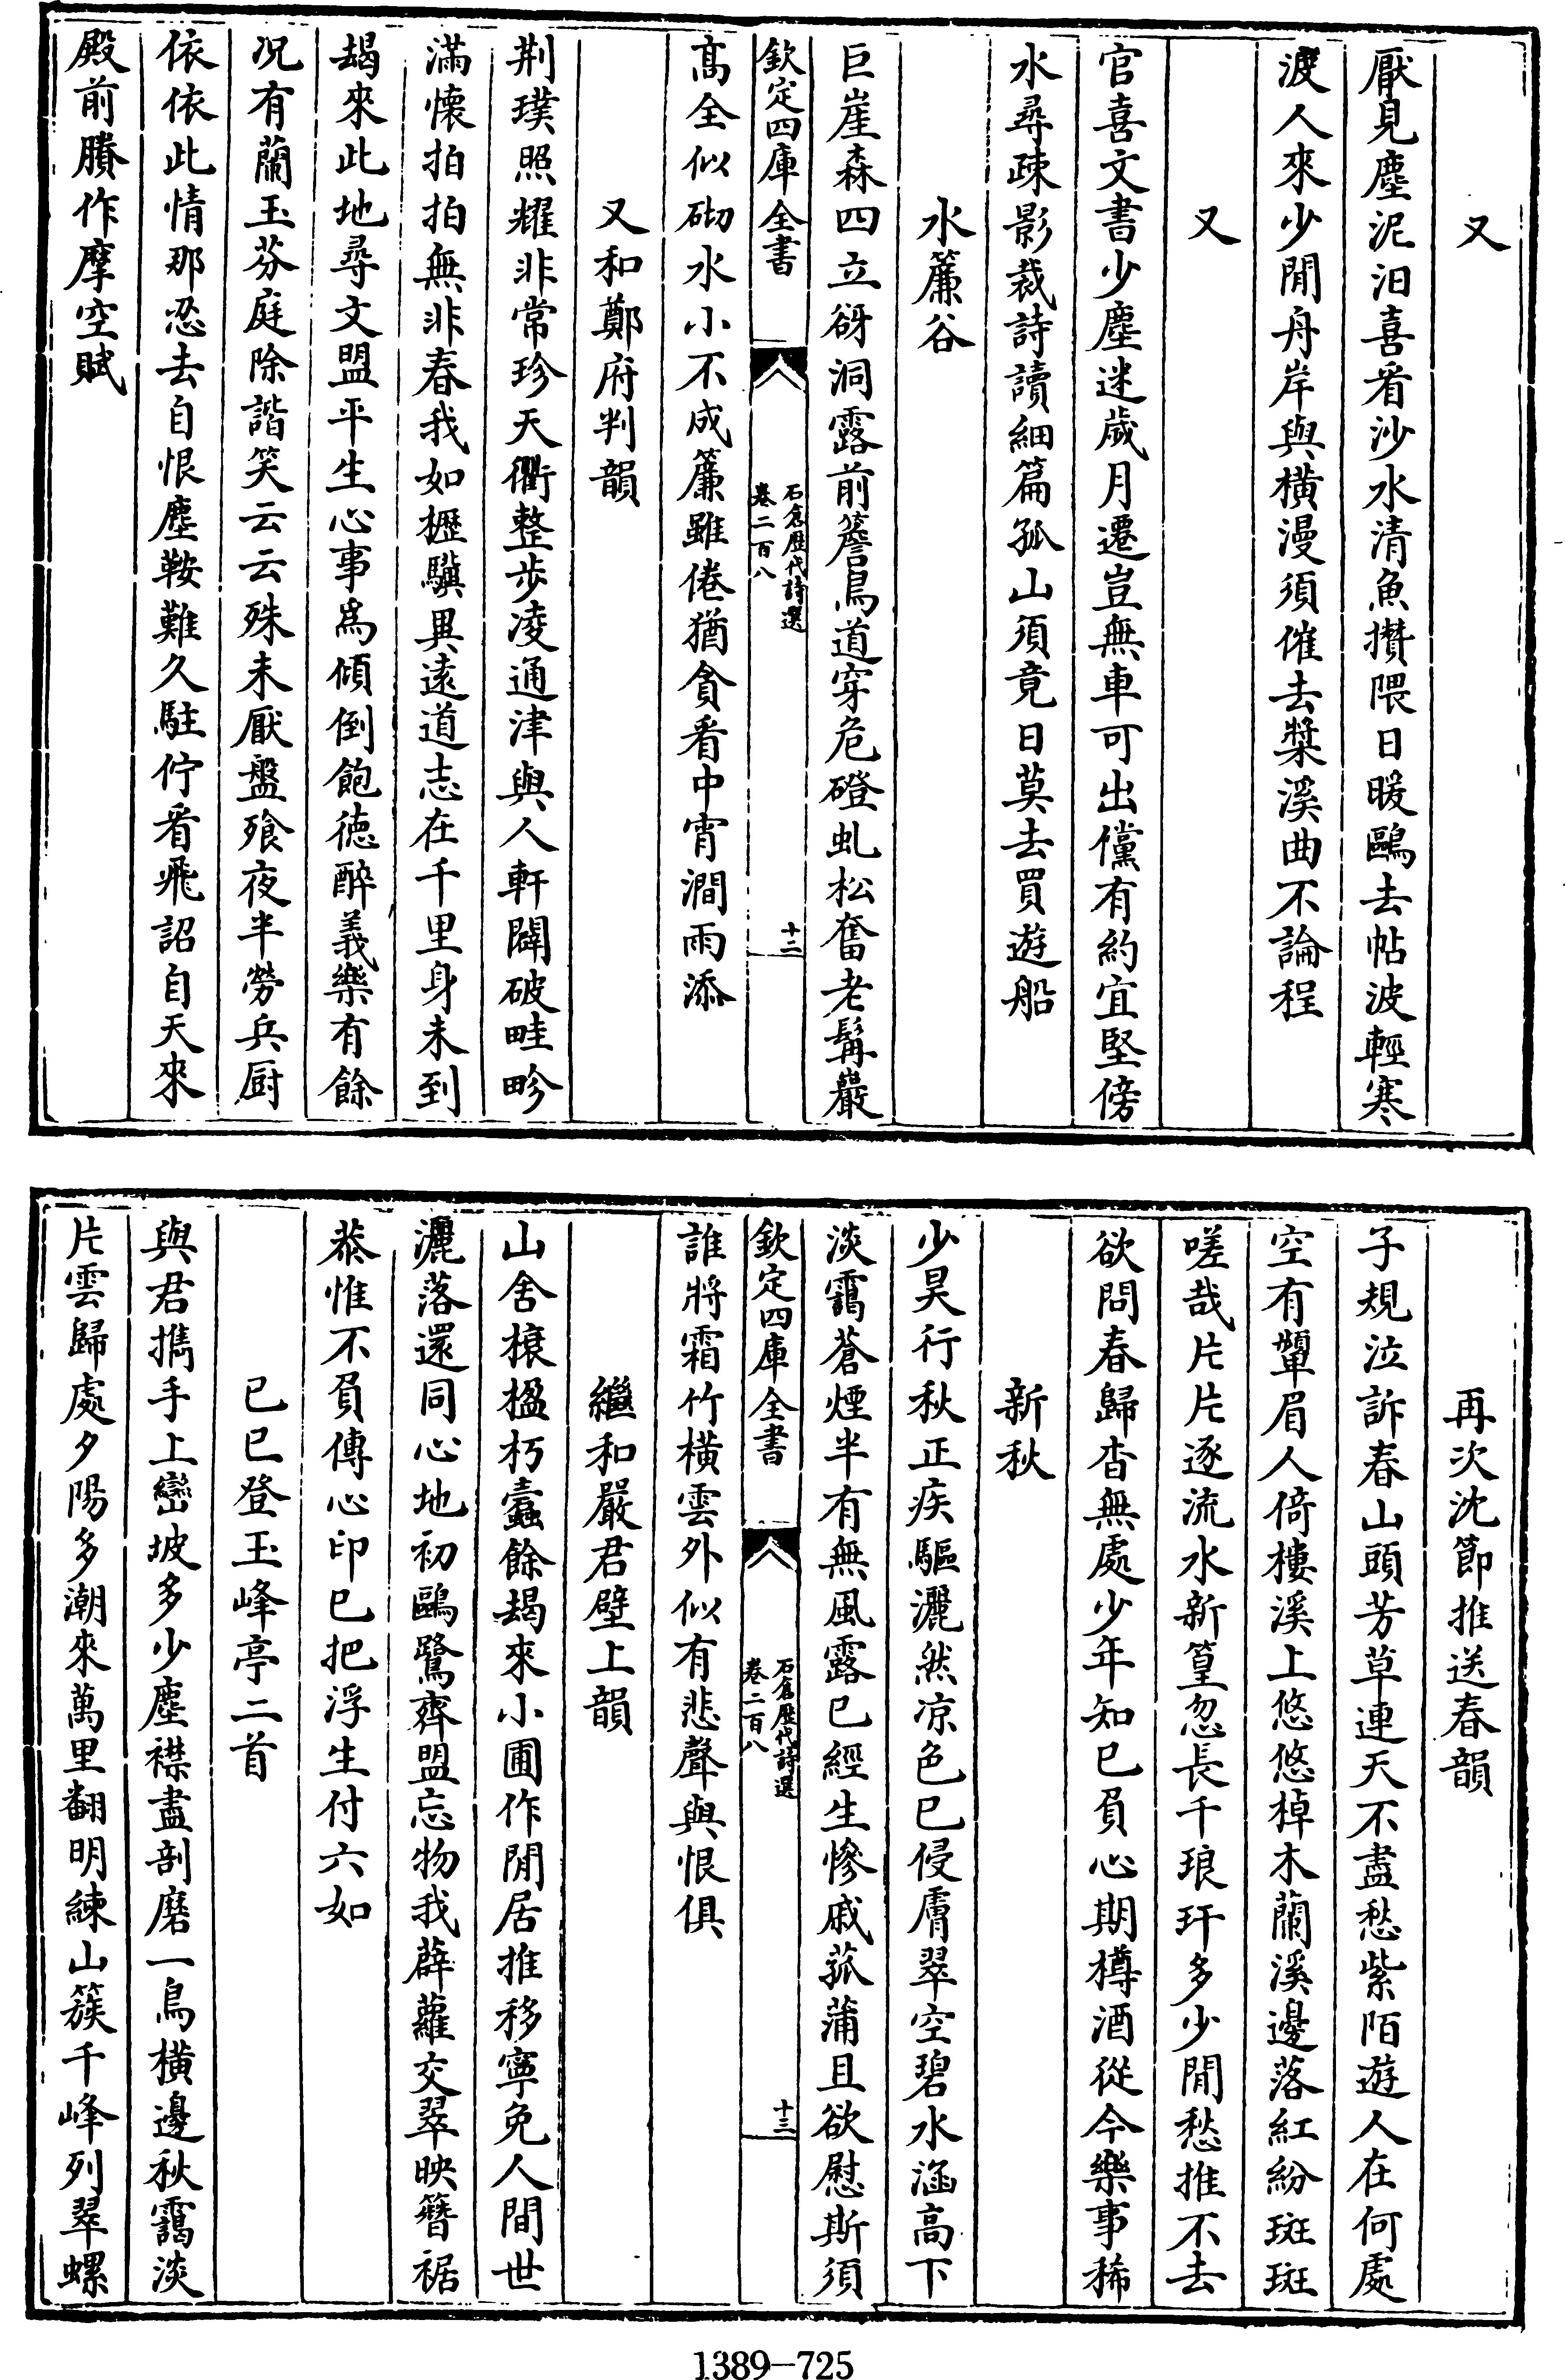 又
厭見塵泥汨喜看沙水清魚攢隈日暖鷗去帖波輕寒
渡人來少閒舟岸與橫漫須催去槳溪曲不論程
又
官喜文書少塵迷歲月遷豈無車可出儻有約宜堅傍
水尋疎影裁詩讀細篇孤山須竟日莫去買遊船
水簾谷
巨崖森四立谺洞露前簷鳥道穿危磴虬松奮老髯巖
欽定四庫全書
石倉歷代詩選
卷二百八
十二
髙全似砌水小不成簾雖倦猶貪看中宵澗雨添
又和鄭府判韻
荆璞照耀非常珍天衢整步凌通津與人軒闢破畦畛
滿懷拍拍無非春我如櫪驥異遠道志在千里身未到
朅來此地尋文盟平生心事爲傾倒飽徳醉義樂有餘
况有蘭玉芬庭除諧笑云云殊未厭盤飱夜半勞兵厨
依依此情那忍去自恨塵鞍難久駐佇看飛詔自天來
殿前賸作摩空賦
再次沈節推送春韻
子規泣訴春山頭芳草連天不盡愁紫陌遊人在何處
空有顰眉人倚樓溪上悠悠棹木蘭溪邊落紅紛斑斑
嗟哉片片逐流水新篁忽長千琅玕多少閒愁推不去
欲問春歸杳無處少年知已負心期樽酒從今樂事稀
新秋
少昊行秋正疾驅灑然凉色已侵膚翠空碧水涵高下
淡靄蒼煙半有無風露已經生慘戚菰蒲且欲慰斯須
欽定四庫全書
石倉歷代詩選
卷二百八
十三
誰將霜竹橫雲外似有悲聲與恨俱
繼和嚴君壁上韻
山舍榱楹朽蠹餘朅來小圃作閒居推移寧免人間世
灑落還同心地初鷗鷺齊盟忘物我薜蘿交翠映簪裾
恭惟不負傳心印已把浮生付六如
己巳登玉峰亭二首
與君攜手上巒坡多少塵襟盡剖磨一鳥橫邊秋靄淡
片雲歸處夕陽多潮來萬里翻明練山簇千峰列翠螺
1389—725